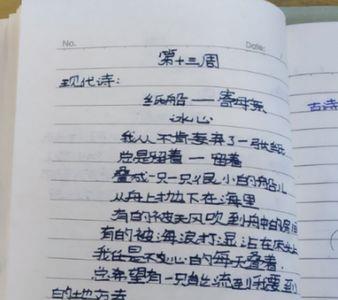 No.
Date:
第十三周
现代诗:
纸船——寄母亲
冰心
我从不肯妄弃了一张纸
总是留着——留着
叠成一只一只很小的船儿
从舟上抛下在海里
有的被天风吹到舟中的窗间
有的被海浪打湿沾在
我仍是不灰心的每天叠着.
总希望有一只能流到我要到
的地方去
古诗